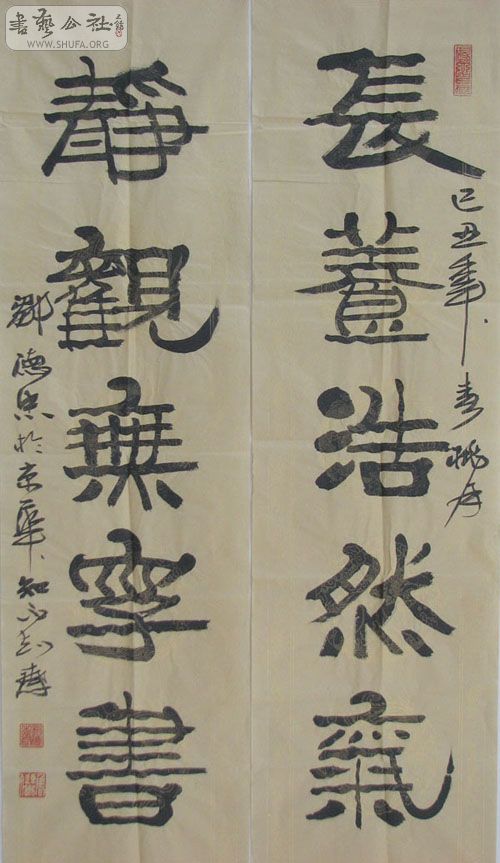 書藝公社
WWW.SHUFA.ORG
長養浩然氣
己丑年春桃月
靜觀無字書
德忠於京華知不知齋